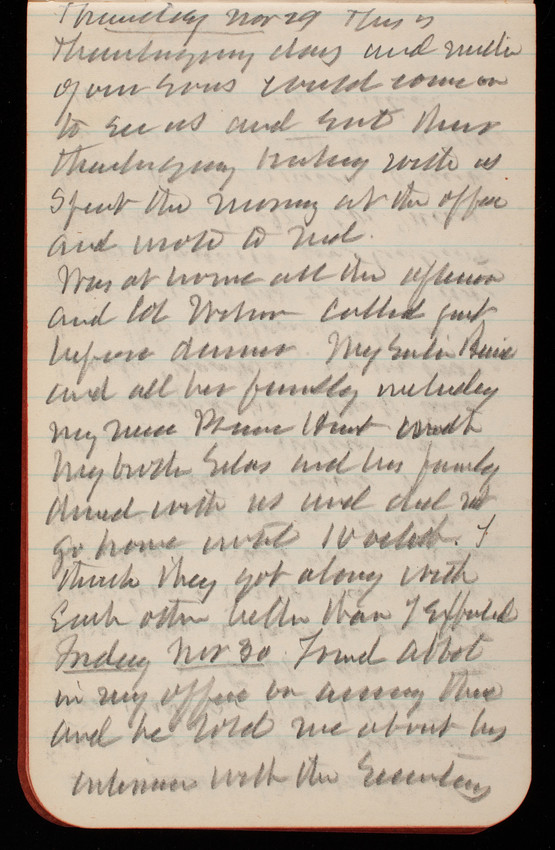 Thursday Nov 29 This is
Thanksgiving day and neither
of our sons could come on
to see us and eat their
thanksgiving turkey with us
Spent the morning at the office
and wrote to Neil.
Was at home all the afternoon
and Col Wilson called just
before dinner. My sister
and all her family including
my niece with
my broth Silas and his family
dined with us and did not
go home until 10 oclock. I
think they got along with
each other better than I expected
Friday Nov 30 Found Abbot
in my office on arriving there
and he told me about his
interview with the Secretary